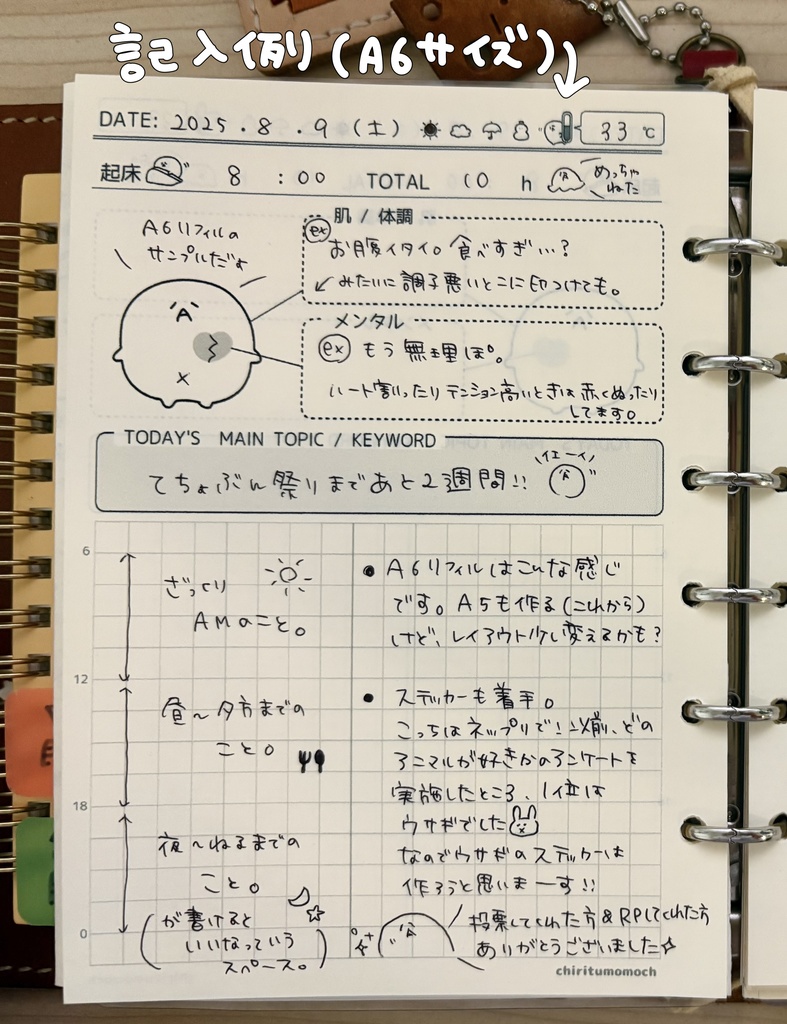 記入例(A6サイズ)
DATE: 2025.8.9(土) 33 ℃
起床 8:00 TOTAL 10 h めっちゃ
ねた
A6リフィルの
サンプルだよ
肌 / 体調
ex お腹イタイ。食べすぎ…?
↙ みたいに調子悪いとこに印つけても。
メンタル
ex もう無理ぽ。
ハート割ったりテンション高いときは赤くぬったり
してます。
TODAY'S MAIN TOPIC / KEYWORD
てちょぶん祭りまであと2週間!! イエーイ
6
ざっくり
AMのこと。
12
昼〜夕方までの
こと。
18
夜〜ねるまでの
こと。
0
(が書けると
いいなっていう
スペース。)
• A6リフィルはこんな感じ
です。A5も作る(これから)
けど、レイアウト少し変えるかも?
• ステッカーも着手。
こっちはネップリで!以前、どの
アニマルが好きかのアンケートを
実施したところ、1位は
ウサギでした
なのでウサギのステッカーは
作ろうと思いまーす!!
投票してくれた方&RPしてくれた方
ありがとうございました☆
chiritumomoch